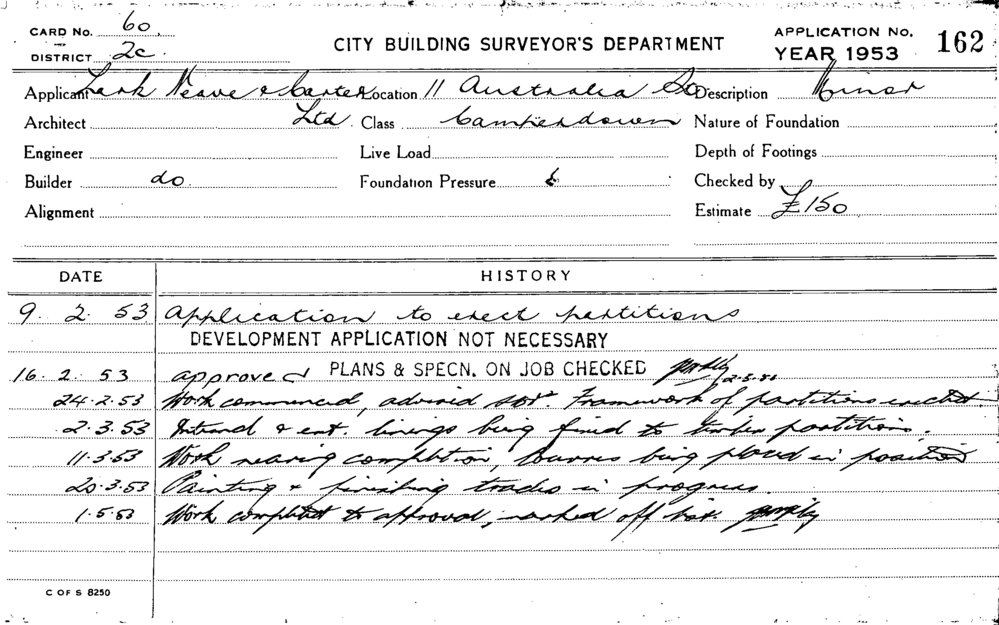 CARD No. 60.
DISTRICT 2c
CITY BUILDING SURVEYOR'S DEPARTMENT
APPLICATION No. 162
YEAR 1953
Applicant Lark Neave & Carter Location 11 Australia St Description Minor
Architect Ltd. Class Camperdown Nature of Foundation
Engineer Live Load Depth of Footings
Builder do Foundation Pressure Checked by
Alignment Estimate £150
DATE HISTORY
9. 2. 53 Application to erect partitions
DEVELOPMENT APPLICATION NOT NECESSARY
16. 2. 53 approved PLANS & SPECN. ON JOB CHECKED 2-3-53
24.2.53 Work commenced, advised Framework of partitions erected
2.3.53 Internal & ext. linings being fixed to timber partitions.
11.3.53 Work nearing completion, being placed in position
20.3.53 Painting & finishing trades in progress.
1.5.53 Work completed to approval, marked off
C OF S 8250